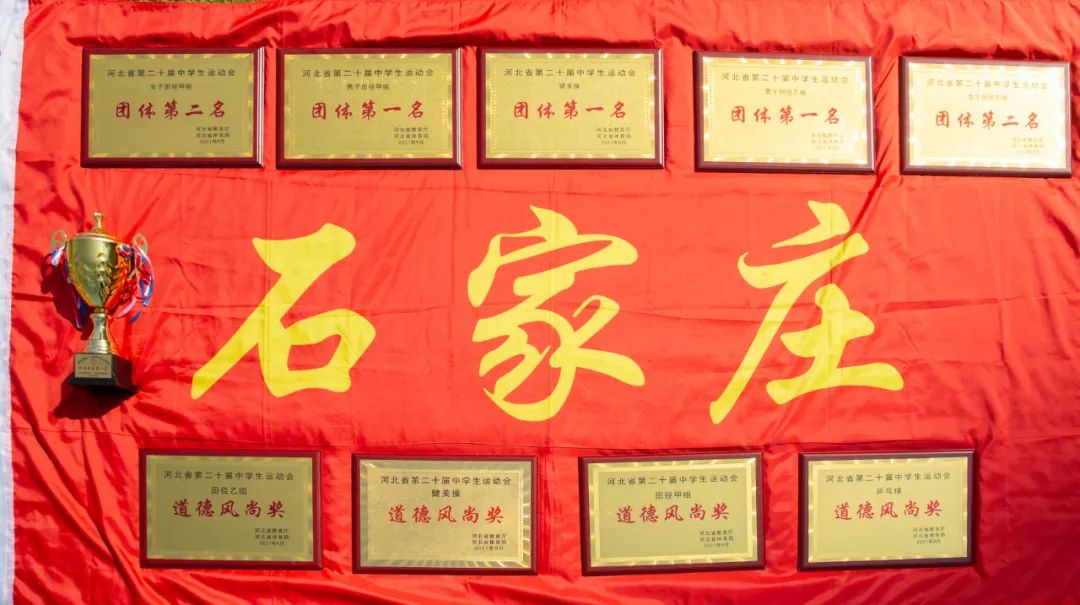 河北省第二十届中学生运动会
女子田径甲组
团体第二名
河北省教育厅
河北省体育局
2021年9月
河北省第二十届中学生运动会
男子田径甲组
团体第一名
河北省教育厅
河北省体育局
2021年9月
河北省第二十届中学生运动会
健美操
团体第一名
河北省教育厅
河北省体育局
2021年9月
河北省第二十届中学生运动会
男子田径乙组
团体第一名
河北省教育厅
河北省体育局
2021年9月
河北省第二十届中学生运动会
女子田径乙组
团体第二名
河北省教育厅
河北省体育局
石家庄
河北省第二十届中学生运动会
田径乙组
道德风尚奖
河北省教育厅
河北省体育局
2021年9月
河北省第二十届中学生运动会
健美操
道德风尚奖
河北省教育厅
河北省体育局
2021年9月
河北省第二十届中学生运动会
田径甲组
道德风尚奖
河北省教育厅
河北省体育局
2021年9月
河北省第二十届中学生运动会
乒乓球
道德风尚奖
河北省教育厅
河北省体育局
2021年9月